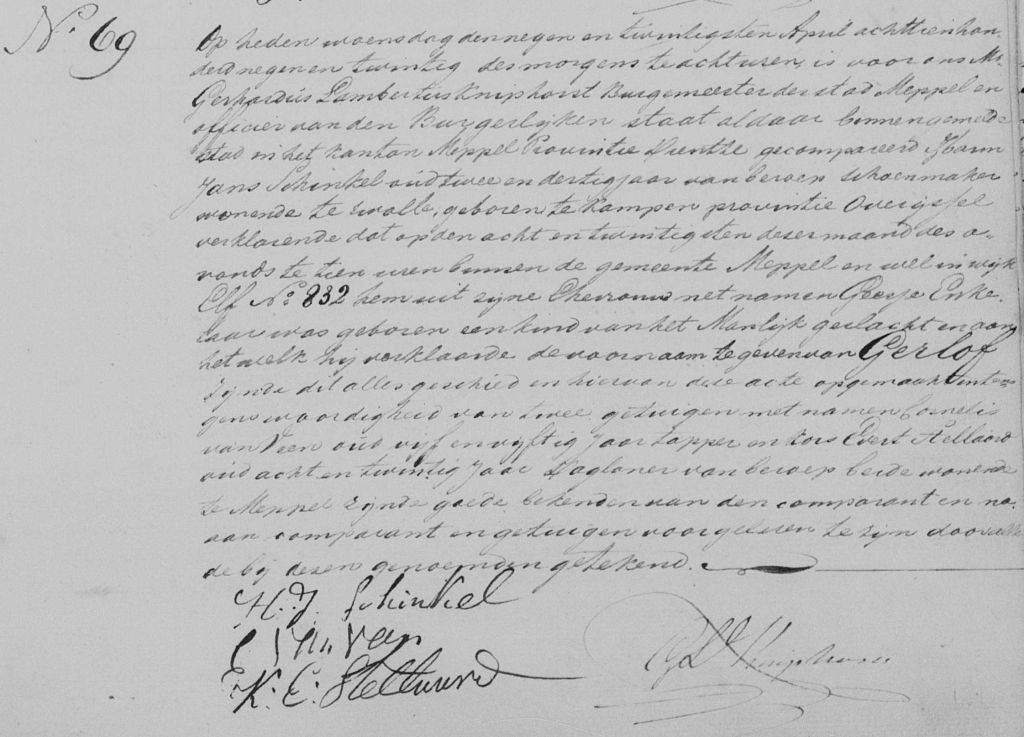 No. 69
Op heden woensdag den negen en twintigsten April achttien hon-
derd negen en twintig des morgens te acht uren, is voor ons Mr.
Gerhardus Lambertus Kniphorst Burgemeester der stad Meppel en
officier van den Burgerlyken staat aldaar binnen gemelde
stad in het kanton Meppel Provintie Drenthe gecompareerd
Jans Schinkel oud twee en dertig jaar van beroep schoenmaker
wonende te Zwolle, geboren te Kampen provintie Overijssel
verklarende dat op den acht en twintigsten dezer maand des a-
vonds te tien uren binnen de gemeente Meppel en wel in wyk
Elf No. 832 hem uit zijne Ehevrouw met namen Geesje Enke-
laar was geboren een kind van het Manlijk geslacht en aan
het welk hij verklaarde de voornaam te geven van Gerlof
Zijnde dit alles geschied en hiervan deze acte opgemaakt in te-
genswoordigheid van twee getuigen met namen Cornelis
van Veen oud vijf en vijftig Jaar tapper en Kors Evert Stellaard
oud acht en twintig Jaar Dagloner van beroep beide wonende
te Meppel zijnde goede bekenden van den comparant en na
aan comparant en getuigen voorgelezen te zijn door
de bij dezen genoemden getekend.
H. J. Schinkel
C van Veen
K. E. Stellaard
G L Kniphorst